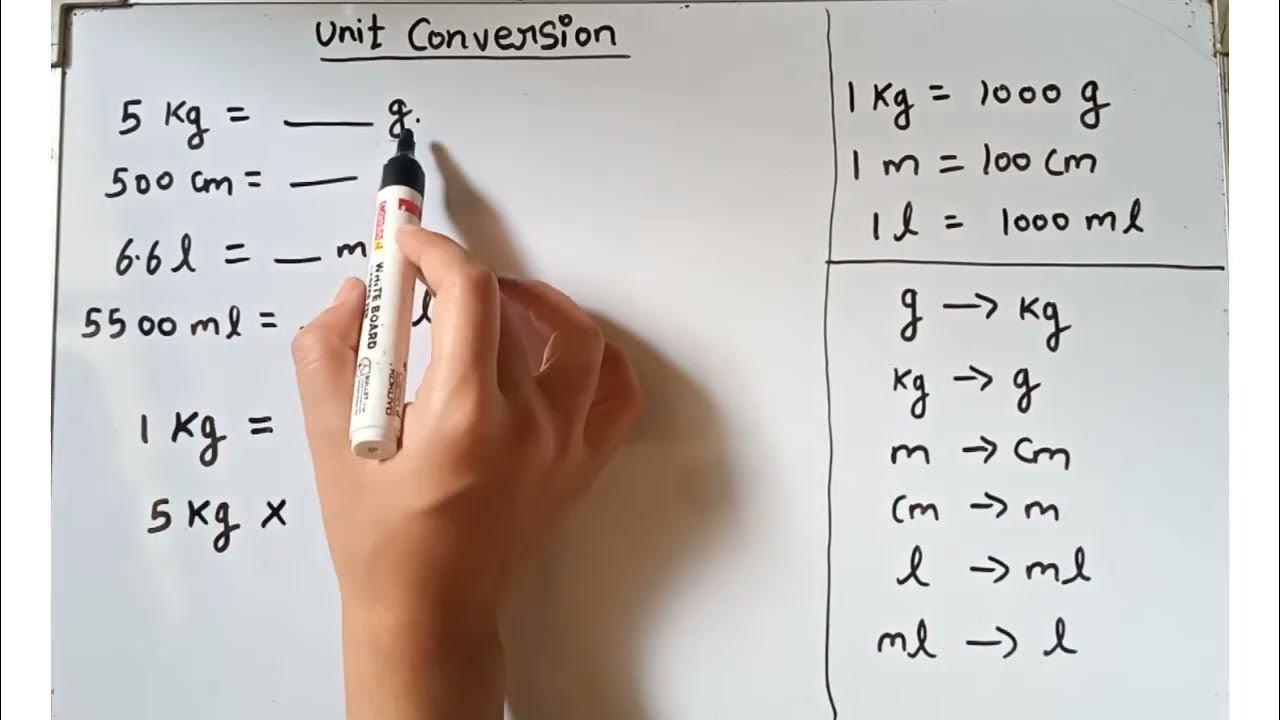 Unit Conversion
5 Kg = ___ g.
500 cm = ___
6.6 l = __ m
5500 ml = l
1 Kg =
5 Kg ×
WHITE BOARD
KOKUYO
1 Kg = 1000 g
1 m = 100 cm
1 l = 1000 ml
g → Kg
Kg → g
m → cm
cm → m
l → ml
ml → l